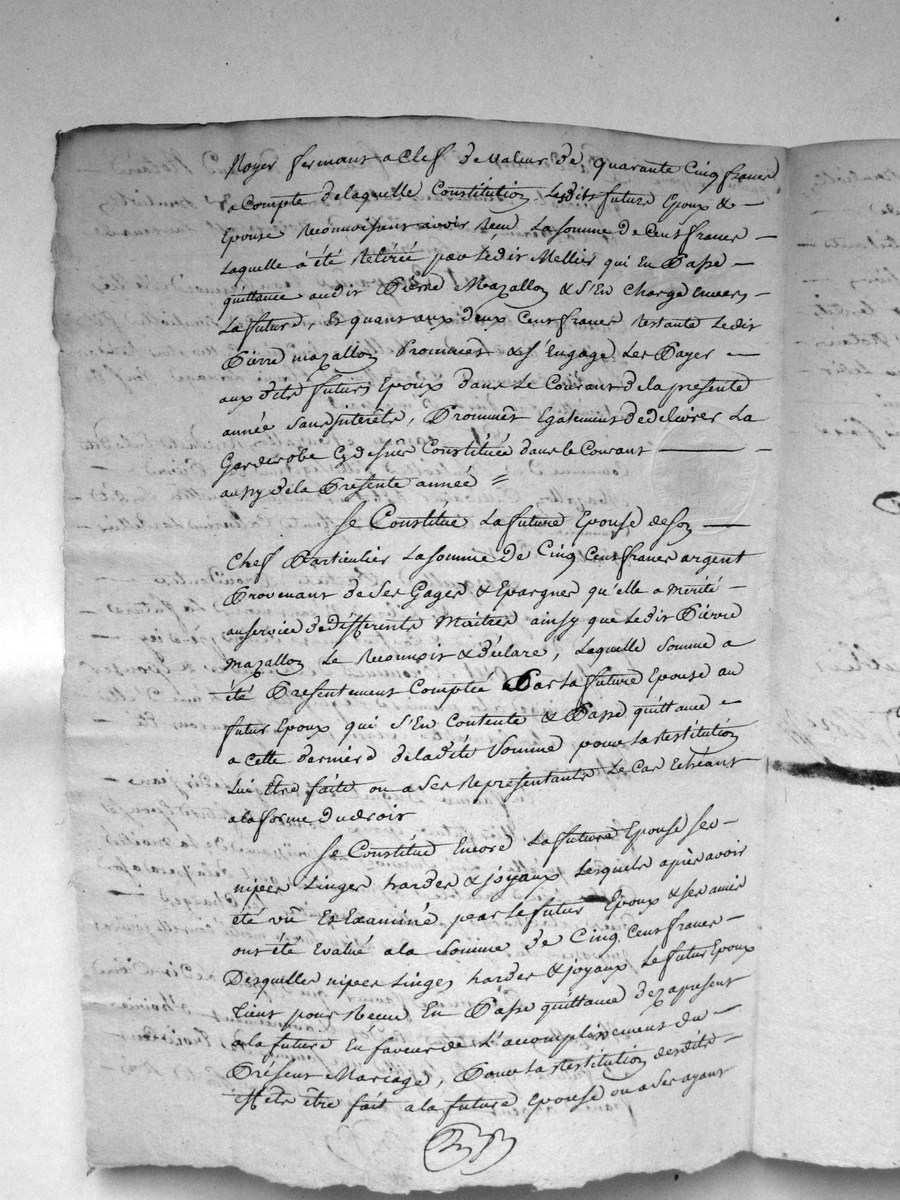 Noyer fermant a Clef de valeur de quarante Cinq francs
a Compte de laquelle Constitution Lesdits future Epoux & —
Epouse Reconnoissent avoir Recu La somme de Cent francs —
Laquelle à été Retirée par Ledit Mellier qui En Passe —
quittance audit Pierre Mazallon & S'En Charge envers —
La future, Et quant aux deux Cent francs restants Ledit
Pierre mazallon Prommet & S'Engage Les Payer —
aux dits futurs Epoux dans Le Courant de la presente
année Sans interêts, Prommet Egalement de delivrer La
Garderobe Cy dessus Constituée dans le Courant —
aussy de la Presente année =
Se Constitue La future Epouse de Son —
Chef Particulier La somme de Cinq Cent francs argent
Provenant de Ses Gages & Epargnes qu'elle a mérité —
au service de differents Maitres ainsy que Ledit Pierre
mazallon Le Reconnoit & déclare, Laquelle Somme a
été Présentement Comptée Par La future Epouse au
futur Epoux qui S'En Contente & Passe quittance —
a Cette derniere de la dite Somme pour La restitution
Lui Etre faite ou a Ses Representants Le Cas Echéant
a la forme du droit
Se Constitue Encore La future Epouse Ses —
nipes Linges hardes & joyaux Lesquels après avoir
été vû Et Examiné par Le futur Epoux & Ses amis
ont été Evalué a la Somme de Cinq Cent francs —
Desquelles nipes Linges hardes & joyaux Le futur Epoux
Tient pour Recu En Passe quittance dez apresent
a la future En faveur de L'accomplissement du —
Présent Mariage, Pour La restitution desdits —
Effets être fait a la future Epouse ou a Ses ayant